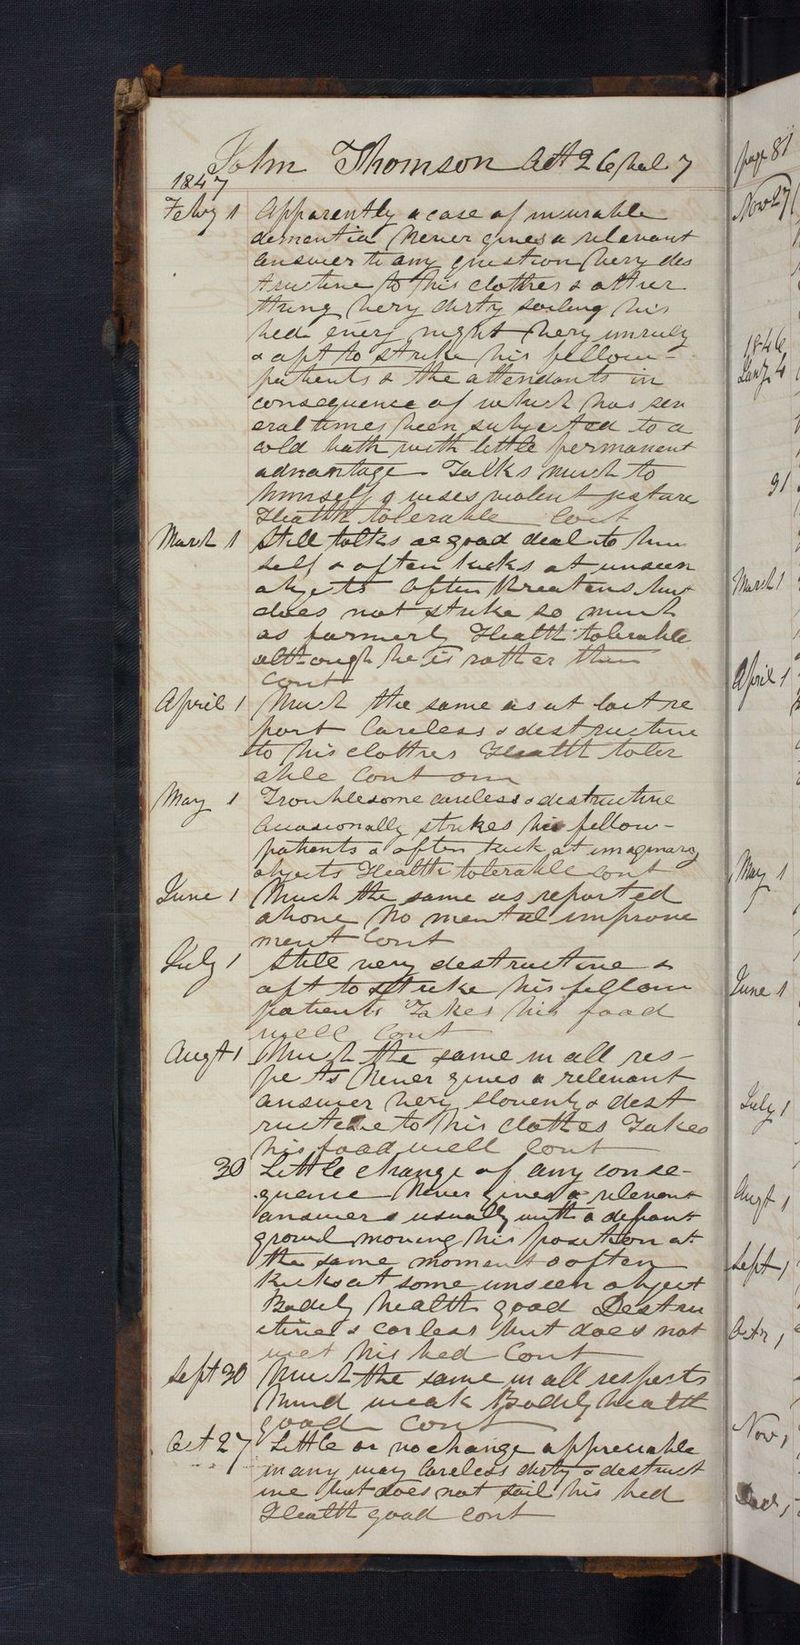 John Thomson Oct 26 Vol 7
1847
Feby 1 Apparently a case of incurable
dementia Never gives a relevant
answer to any question Very des
tructive to his clothes & other
thing very dirty soiling his
bed every night Very unruly
& apt to strike his fellow-
patients & the attendants in
consequence of which has sev
eral times been subjected to a
cold bath with little permanent
advantage Talks much to
himself & uses violent gesture
Health tolerable Cont
March 1 Still talks a good deal to him
self & often kicks at unseen
objects Often threatens but
does not strike so much
as formerly Health tolerable
although he is rather thin
Cont
April 1 Much the same as at last re
port Careless & destructive
to his clothes Health toler
able Cont
May 1 Troublesome careless & destructive
Occasionally strikes his fellow-
patients & often kick at imaginary
objects Health tolerable cont
June 1 Much the same as reported
above No mental improve
ment Cont
July 1 Still very destructive &
apt to strike his fellow
patients Takes his food
well Cont
Augt 1 Much the same in all res-
pects Never gives a relevant
answer very slovenly & dest
ructive to his clothes Takes
his food well Cont
30 Little change of any conse-
quence Never gives a relevant
answer & usually with a defiant
growl moving his position at
the same moment & often
kicks at some unseen object
Bodily health good Destruc
tive & carless but does not
wet his bed Cont
Sept 30 Much the same in all respects
Mind weak Bodily health
good Cont
Oct 27 Little or no change appreciable
in any way Careless dirty & destruct
ive but does not soil his bed
Health good cont
page 81
Nov 27
1846
Jany 4
31
March 1
April 1
May 1
June 1
July 1
Augt 1
Sept 1
Octr 1
Nov 1